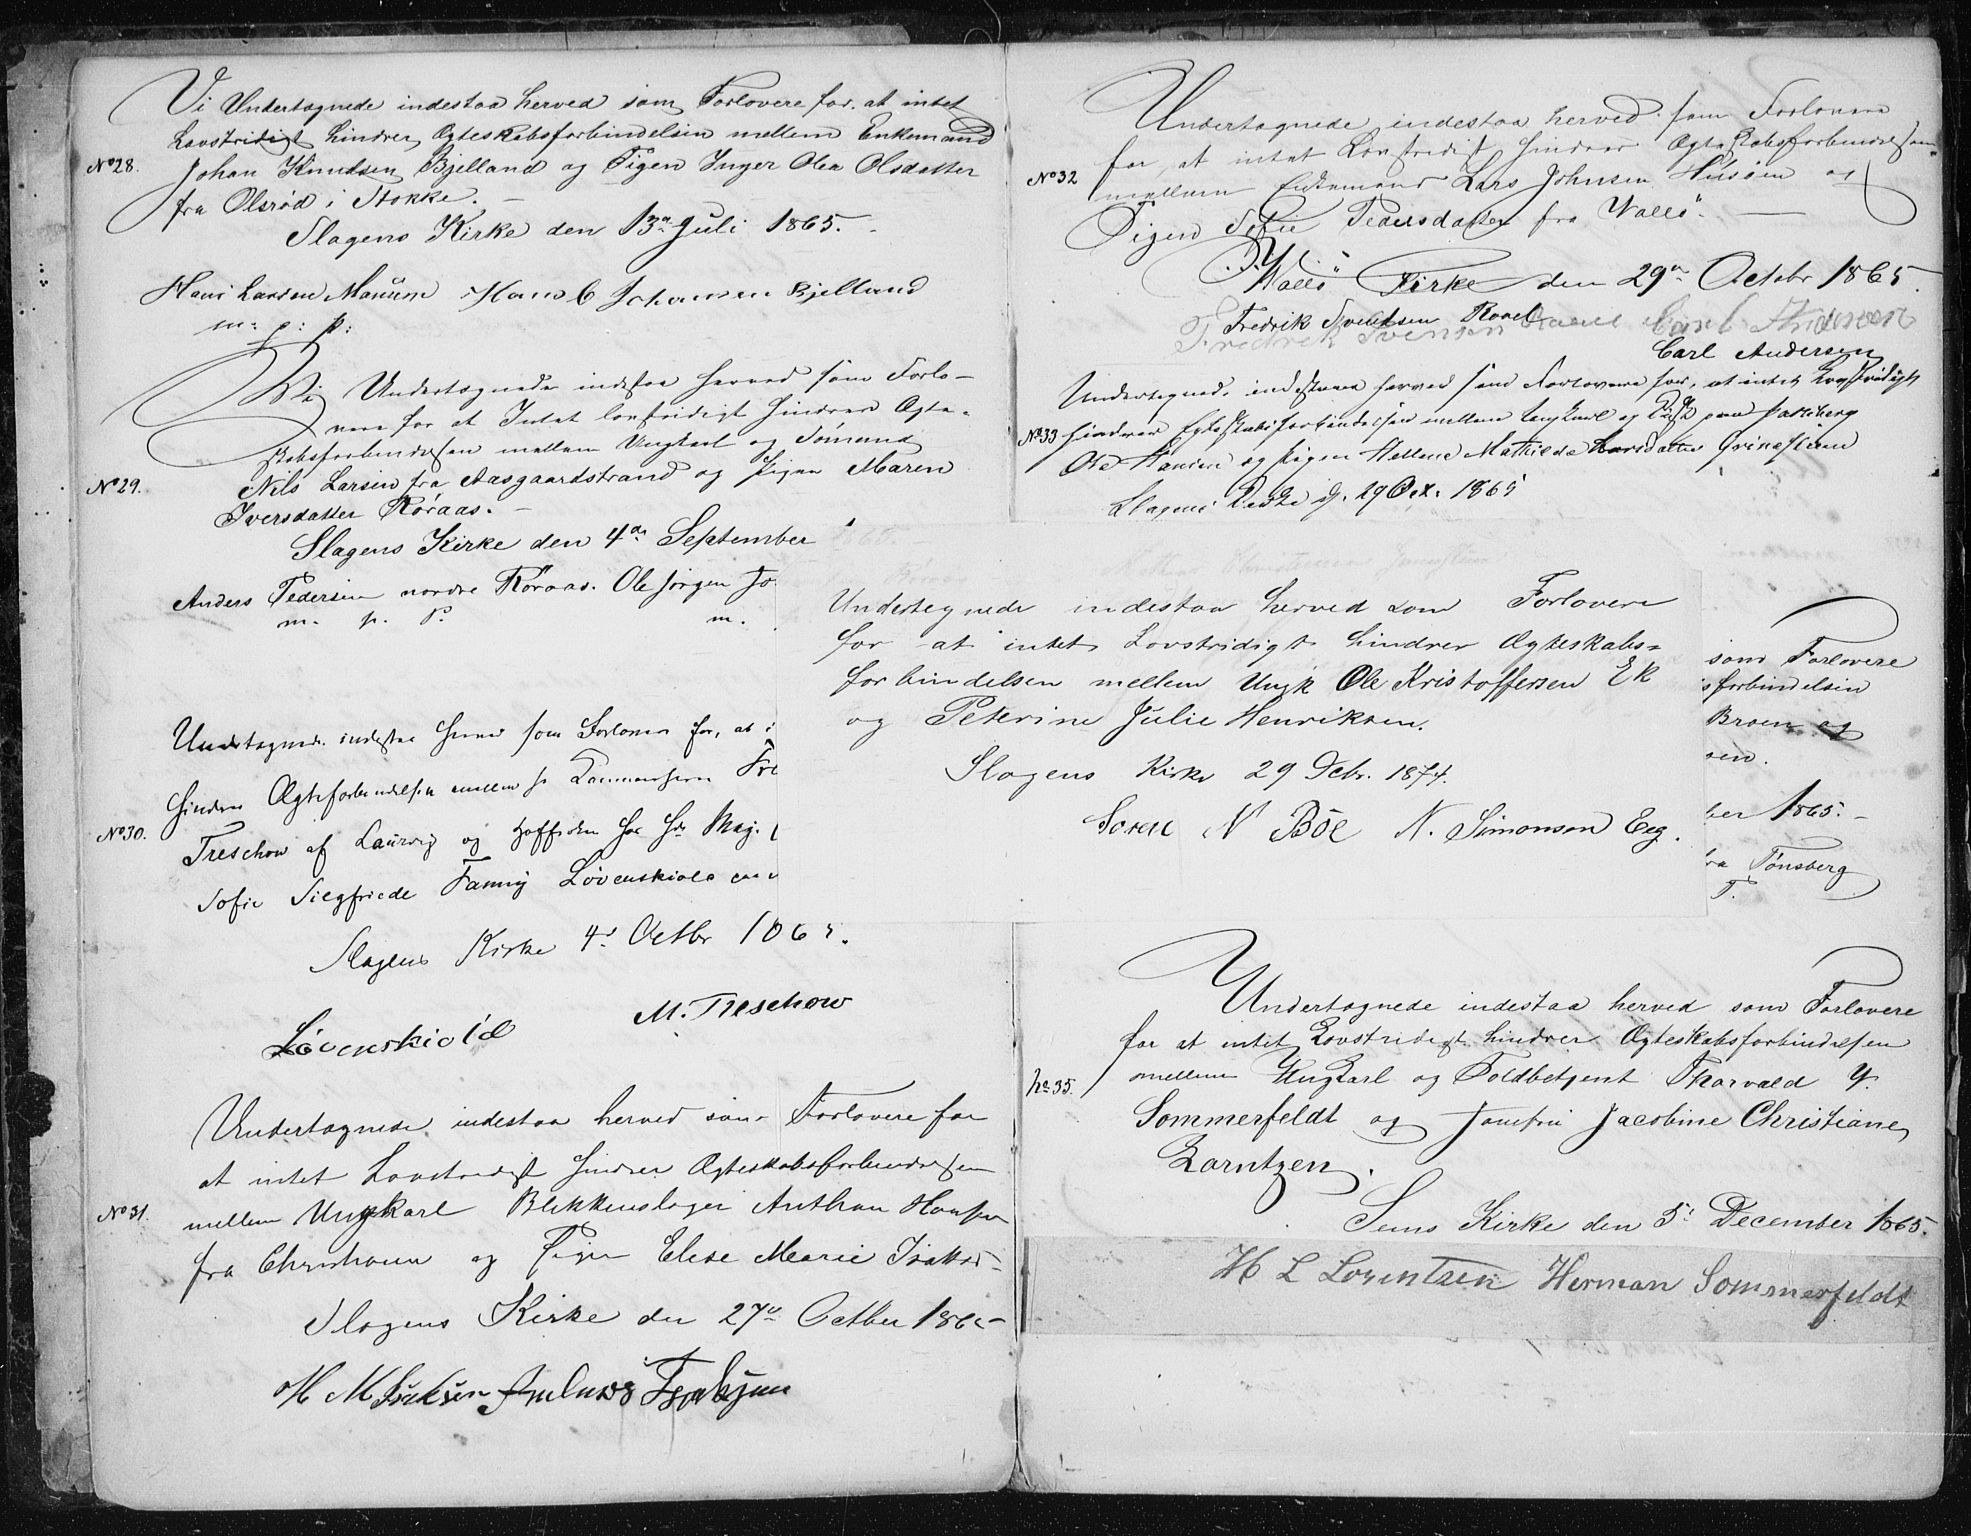 Vi Undertegnede indestaa herved som Forlovere for, at intet
Lovstridigt hindrer Ægteskabsforbindelsen mellem Enkemand
No 28. Johan Knudsen Bjelland og Pigen Inger Olea Olsdatter
fra Olsrød i Stokke. —
Slagens Kirke den 13de Juli 1865.
Hans Larsen Hans C Johansen Bjelland
m. p. p.
Vi Undertegnede indestaa herved som Forlo-
vere for at Intet lovstridigt hindrer Ægte-
skabsforbindelsen mellem Ungkarl og Sømand
No 29. Nils Larsen fra Aasgaardstrand og Pigen Maren
Iversdatter Røraas. —
Slagens Kirke den 4de September
Anders Pedersen nordre Røraas. Ole Jørgen Jo
m. p. P. m.
Undertegnede indestaa herved som Forlovere for, at i
hindrer Ægteforbindelsen mellem Fre
No 30. Treschow af Laurvig og
Sofie Siegfriede Fanny Løvenskiold
Slagens Kirke 4d Octbr 1865.
Løvenskiold M. Treschow
Undertegnede indestaa herved som Forlovere for
at intet Lovstridigt hindrer Ægteskabsforbindelsen
No 31. mellem Ungkarl Blikkenslager Anthon Hansen
fra og Pigen Elise Marie
Slagens Kirke den 27de October 1865
H M Isaksen
Undertegnede indestaa herved som Forlovere
for, at intet Lovstridigt hindrer Ægteskabsforbindelsen
No 32 mellem Enkemand Lars Johnsen Husøen og
Pigen Sofie Pedersdatter fra Vallø. —
Vallø Kirke den 29de Octobr 1865.
Fredrik Svendsen Carl Andersen
Fredrik Svensen
Carl Andersen
Undertegnede indestaa herved som Forlovere for, at intet Lovstridigt
No 33 hindrer Egteskabsforbindelsen mellem Ungkarl og
Ole Hansen og Pigen Hellene Mathilde
Slagens Kirke d. 29 Oct. 1865
Undertegnede indestaa herved som Forlovere
for at intet Lovstridigt hindrer Ægteskabs=
forbindelsen mellem Ungk Ole Kristoffersen Ek
og Peterine Julie Henriksen.
Slagens Kirke 29 Dcbr. 1874.
Soren N Böe N. Simonsen Eeg.
som Forlovere
sforbindelsen
Broen og
sen.
ber 1865. —
fra Tønsberg
T.
Undertegnede indestaa herved som Forlovere
for at intet Lovstridigt hindrer Ægteskabsforbindelsen
No 35. mellem Ungkarl og Toldbetjent Thorvald
Sommerfeldt og Jomfru Jacobine Christiane
Lorntzen.
Sems Kirke den 5te December 1865.
H L Lorentzen Herman Sommerfeldt